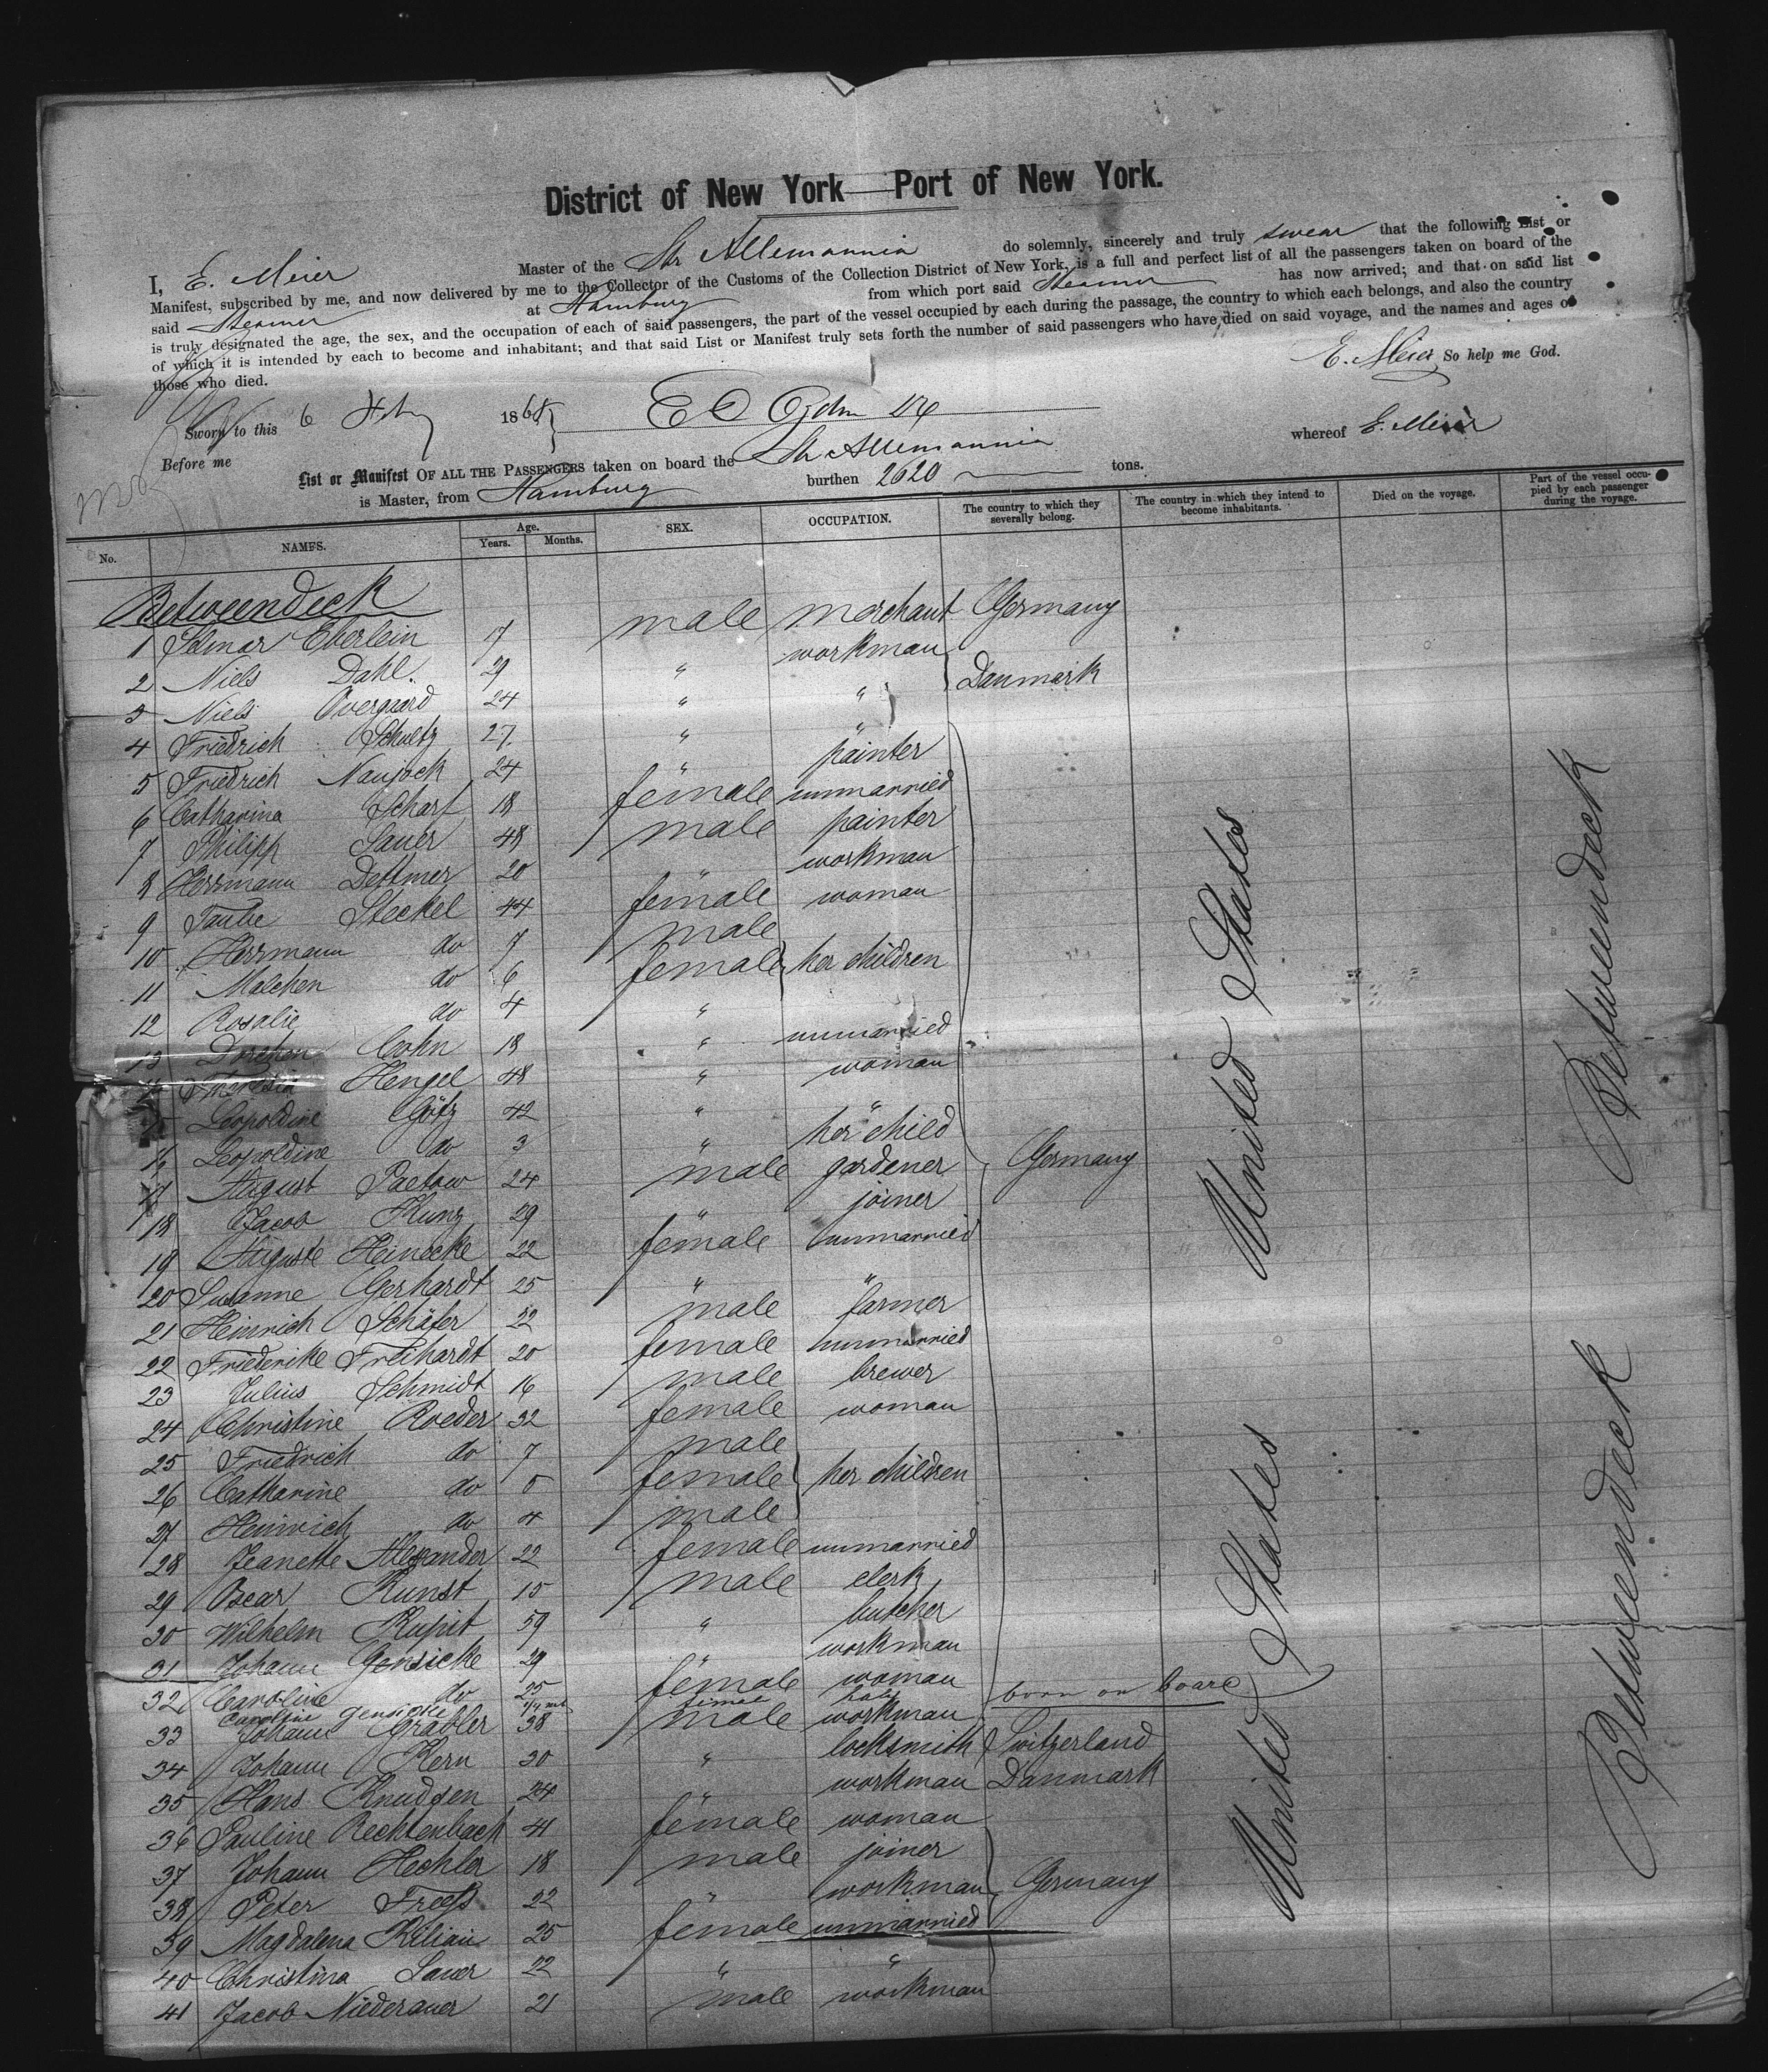 District of New York—Port of New York.
I, E. Meier Master of the Str Allemannia do solemnly, sincerely and truly swear that the following List or
Manifest, subscribed by me, and now delivered by me to the Collector of the Customs of the Collection District of New York, is a full and perfect list of all the passengers taken on board of the
said Steamer at Hamburg from which port said Steamer has now arrived; and that on said list
is truly designated the age, the sex, and the occupation of each of said passengers, the part of the vessel occupied by each during the passage, the country to which each belongs, and also the country
of which it is intended by each to become and inhabitant; and that said List or Manifest truly sets forth the number of said passengers who have died on said voyage, and the names and ages of
those who died.
E. Meier So help me God.
Sworn to this 6 1868
Before me
List or Manifest OF ALL THE PASSENGERS taken on board the Str Allemannia whereof E. Meier
is Master, from Hamburg burthen 2620 tons.
No. NAMES. Age. Years. Months. SEX. OCCUPATION. The country to which they severally belong. The country in which they intend to become inhabitants. Died on the voyage. Part of the vessel occupied by each passenger during the voyage.
Betweendeck
1 Selmar Eberlein 17 male merchant Germany
2 Niels Dahl. 29 " workman
3 Niels Overgaard 24 " " Danmark
4 Friedrich Schultz 27. " "
5 Friedrich Naujock 24 " painter
6 Catharina Scharf 18 female unmarried
7 Philipp Sauer 48 male painter
8 Herrmann Dettmer 20 " workman
9 Taube Steckel 44 female woman
10 Herrmann do 7 male
11 Malchen do 6 female her children
12 Rosalie do 4 "
13 Dorchen Cohn 18 " unmarried
14 Theresia Hengel 48 " woman
15 Leopoldine Götz 42 " "
16 Leopoldine do 3 " her child
17 August Paetow 24 male gardener Germany
18 Jacob Kunz 29 " joiner
19 Auguste Heinecke 22 female unmarried
20 Susanne Gerhardt 25 " "
21 Heinrich Schäfer 22 male farmer
22 Friederike Freihardt 20 female unmarried
23 Julius Schmidt 16 male brewer
24 Christine Roeder 32 female woman
25 Friedrich do 7 male
26 Catharine do 5 female her children
27 Heinrich do 4 male
28 Jeanette Alexander 22 female unmarried
29 Oscar Kunst 15 male clerk
30 Wilhelm Kupit 59 " butcher
31 Johann Gensicke 29 " workman
32 Caroline do 25 female woman
Caroline Gensicke born on board
33 Johann Grabler 38 male workman
34 Johann Kern 30 " locksmith Switzerland
35 Hans Knudsen 24 " workman Danmark
36 Pauline Rechtenbach 41 female woman
37 Johann Hechler 18 male joiner
38 Peter Freeß 22 " workman Germany
39 Magdalena Kilian 25 female unmarried
40 Christina Sauer 22 " "
41 Jacob Niederauer 21 male workman
United States
United States
Betweendeck
Betweendeck